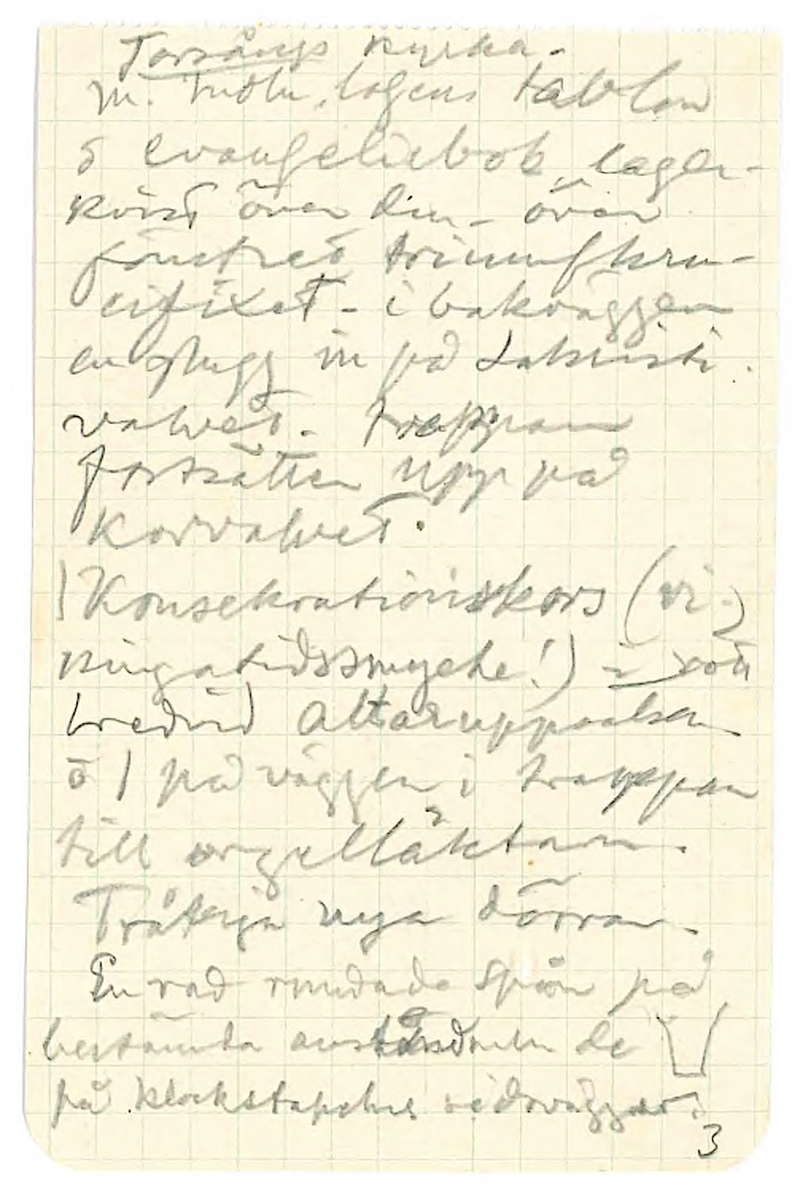 Torsångs kyrka.
m. lagens tablon
o evangeliebok, lager-
kvist över den - över
fönstret triumfkru-
cifixet - i bakväggen
en glugg in på sakristi
valvet. Trappan
fortsätter upp på
korvalvet.
1 Konsekrationskors (vi-
kingatidssmycke!) i
bredvid altaruppsatsen
o 1 på väggen i trappan
till orgelläktaren.
Tråkiga nya dörrar.
En rad rundade spån på
bestämda de
på klockstapelns sidoväggar.
3